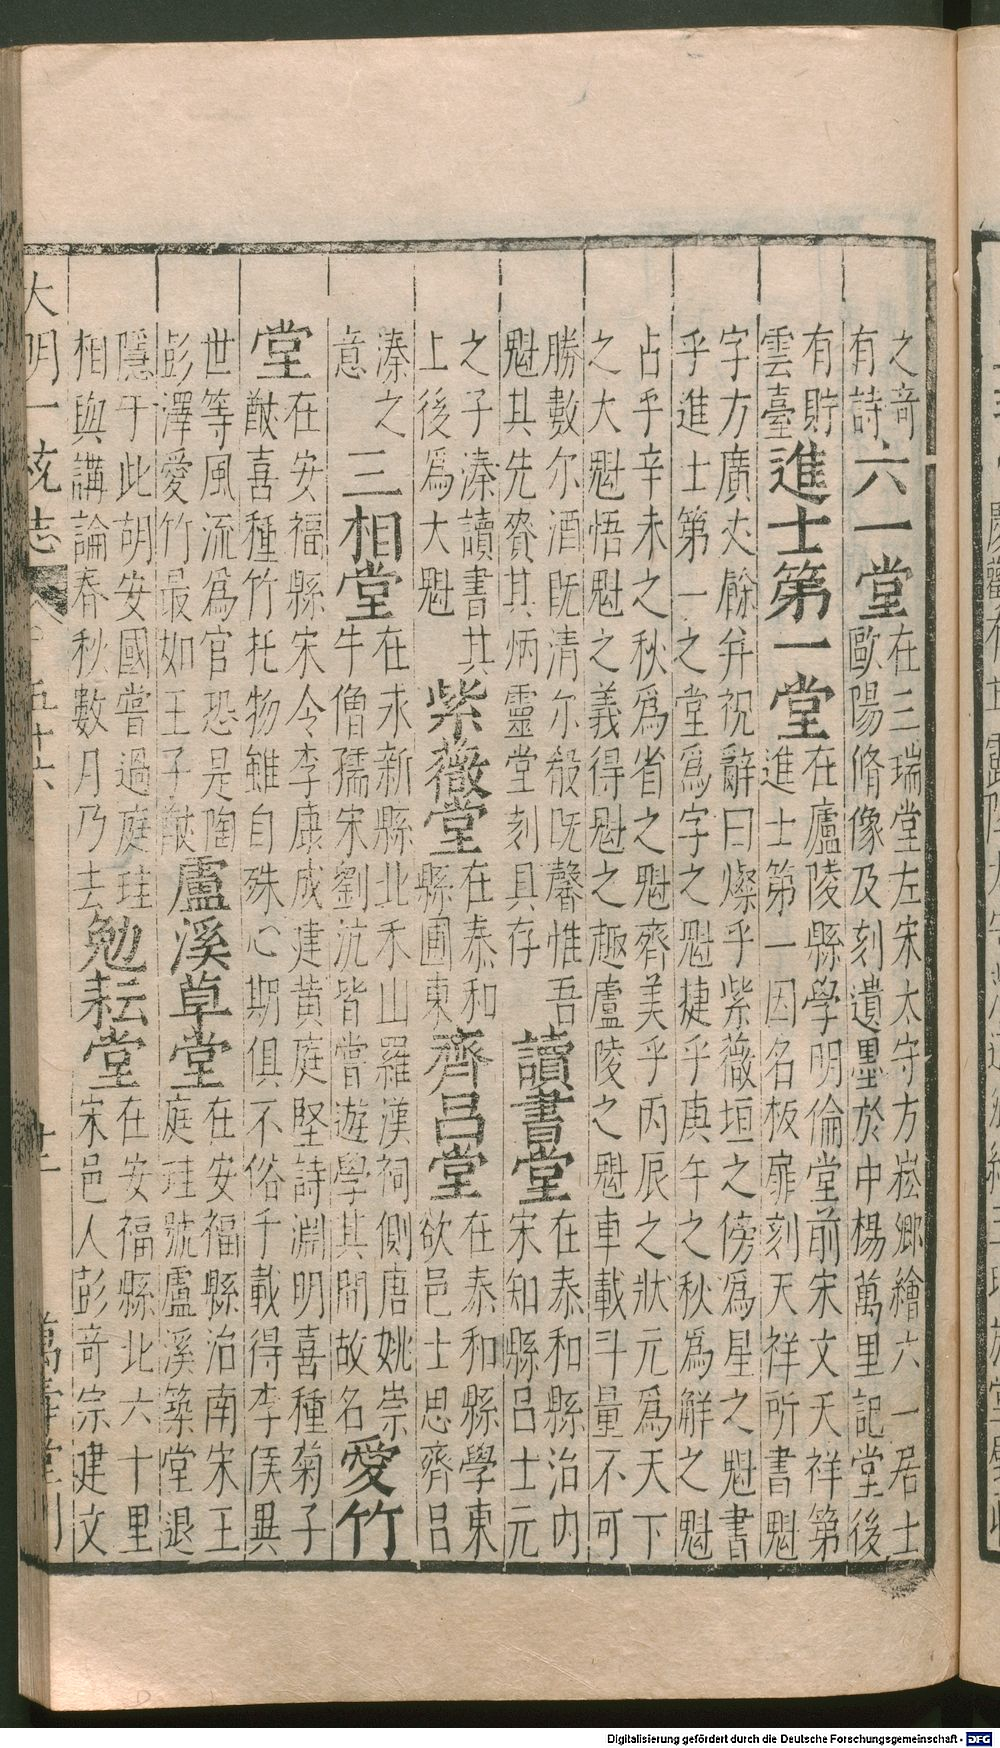 之竒
有詩
六一堂
在三瑞堂左宋太守方崧卿繪六一居士
歐陽脩像及刻遺墨於中楊萬里記堂後
有貯
雲臺
進士第一堂
在廬陵縣學明倫堂前宋文天祥第
進士第一因名板扉刻天祥所書魁
字方廣丈餘并祝辭曰燦乎紫薇垣之傍爲星之魁書
乎進士第一之堂爲字之魁捷乎庚午之秋爲解之魁
占乎辛未之秋爲省之魁齊美乎丙辰之狀元爲天下
之大魁悟魁之義得魁之趣廬陵之魁車載斗量不可
勝數尔酒旣清尔殽旣馨惟吾
魁其先賚其炳靈堂刻具存
讀書堂
在泰和縣治内
宋知縣呂士元
之子溱讀書其
上後爲大魁
紫薇堂
在泰和
縣圃東
齊呂堂
在泰和縣學東
欲邑士思齊呂
溱之
意
三相堂
在永新縣北禾山羅漢祠側唐姚崇
牛僧孺宋劉沆皆嘗遊學其間故名
愛竹
堂
在安福縣宋令李康成建黄庭堅詩淵明喜種菊子
猷喜種竹托物雖自殊心期俱不俗千載得李侯異
世等風流爲官恐是陶
彭澤愛竹最如王子猷
盧溪草堂
在安福縣治南宋王
庭珪號盧溪築堂退
隱于此胡安國嘗過庭珪
相與講論春秋數月乃去
勉耘堂
在安福縣北六十里
宋邑人彭竒宗建文
大明一統志
五十六
萬壽堂刊
Digitalisierung gefördert durch die Deutsche Forschungsgemeinschaft - DFG